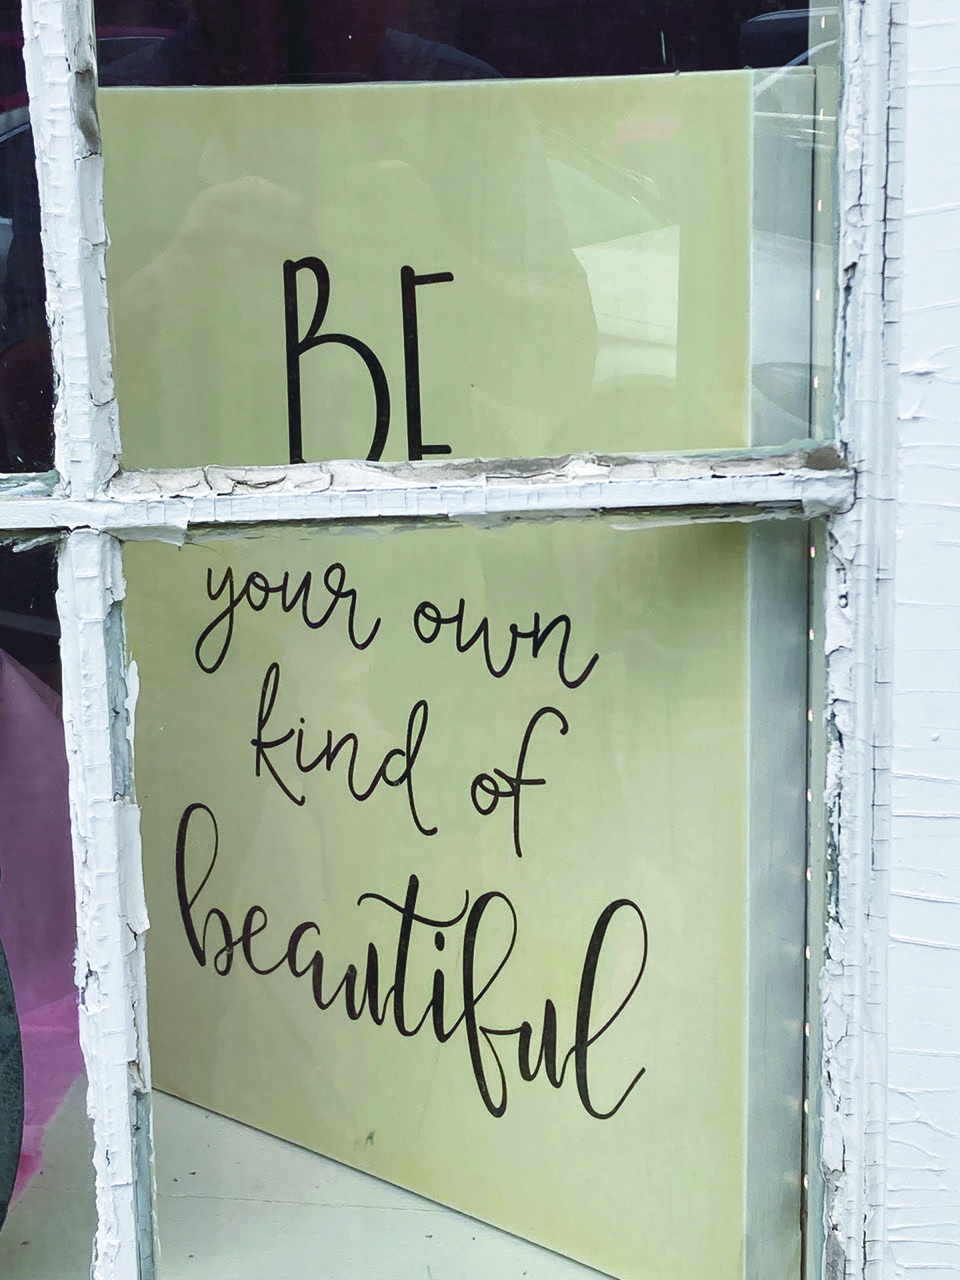 BE
your own
kind of
beautiful